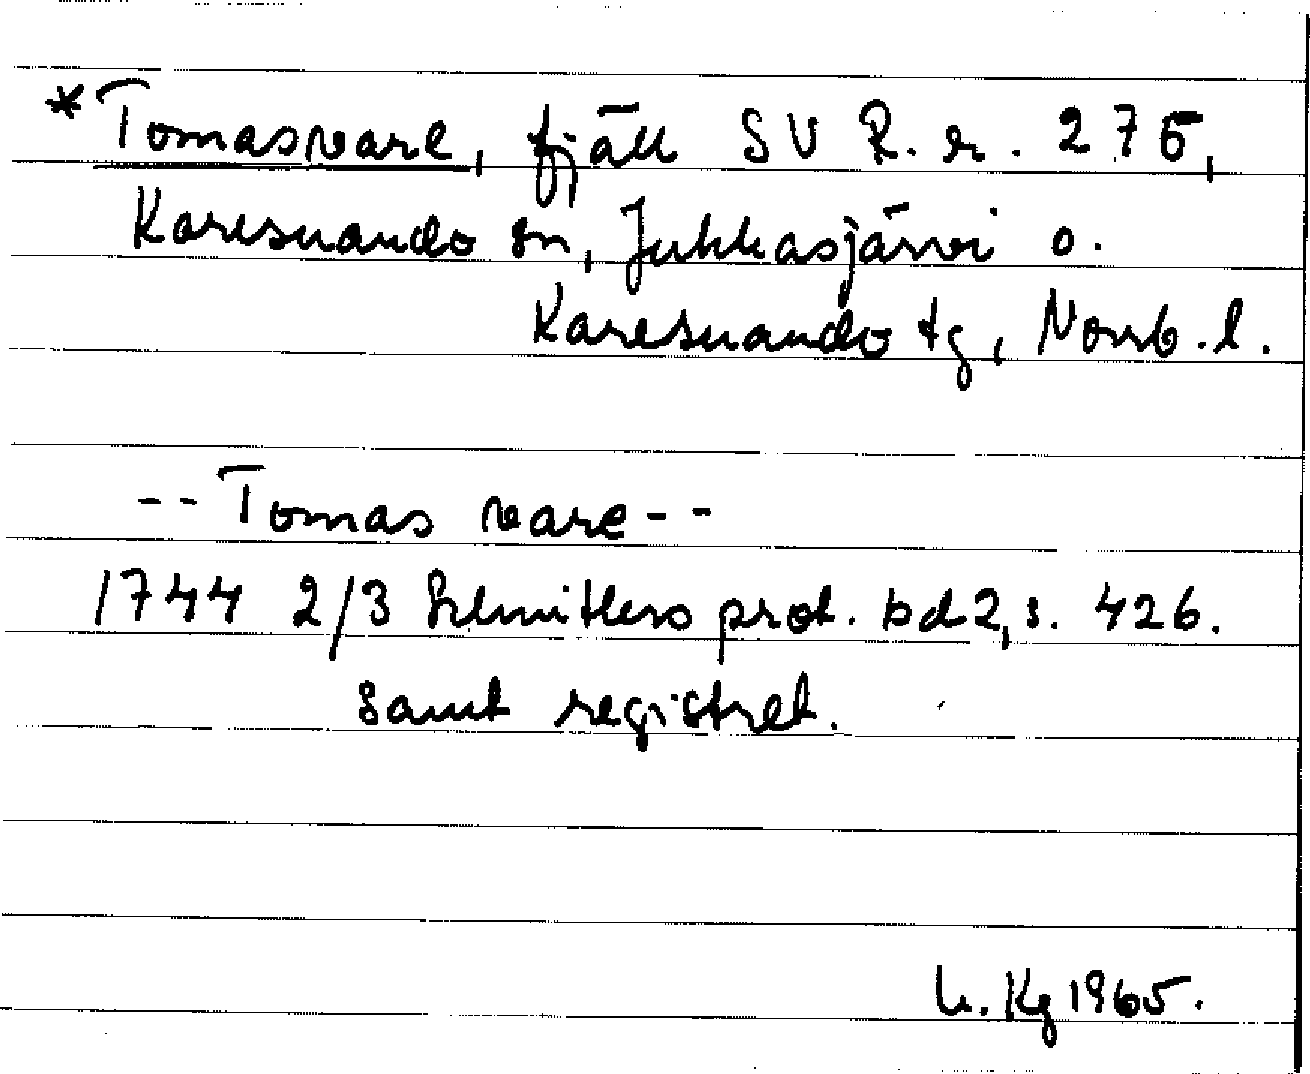 *Tomasvare, fjäll SV R. r. 275,
Karesuando sn, Jukkasjärvi o.
Karesuando tg, Norrb. l.
-- Tomas vare --
1744 2/3 Schnitlers prot. bd 2, s. 426.
samt registret.
Kg 1965.